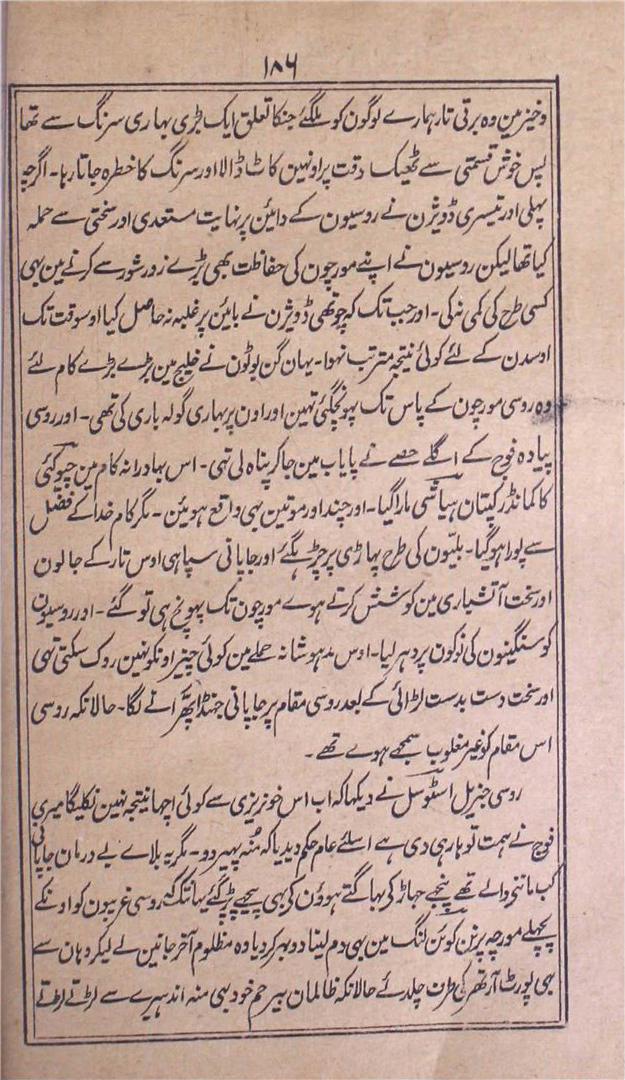 ۱۸۶
وخیز مین وہ برقی تار ہمارے لوگون کو ملگئے جنکا تعلق ایک بڑی بہاری سرنگ سے تھا
پس خوش قسمتی سے ٹھیک وقت پر اونہین کاٹ ڈالا اور سرنگ کا خطرہ جاتا رہا۔ اگرچہ
پہلی اور تیسری ڈویژن نے روسیون کے دائین پر نہایت مستعدی اور سختی سے حملہ
کیا تھا لیکن روسیون نے اپنے مورچون کی حفاظت بھی بڑے زور شور سے کرنے مین بہی
کسی طرح کی کمی نہ کی۔ اور جب تک کہ چوتھی ڈویژن نے بائین پر غلبہ نہ حاصل کیا اوسوقت تک
اوسدن کے لئے کوئی نتیجہ مترتب نہوا۔ یہان گن بوٹون نے خلیج مین بڑے بڑے کام لئے
وہ روسی مورچون کے پاس تک پہونچگئی تہین اور اون پر بہاری گولہ باری کی تھی۔ اور روسی
پیادہ فوج کے اگلے حصے نے پایاب مین جا کر پناہ لی تہی۔ اس بہادرانہ کام مین چوکئی
کا کمانڈر کپتان ہیاشی مارا گیا۔ اور چند اور موتین بہی واقع ہوئین۔ مگر کام خدا کے فضل
سے پورا ہو گیا۔ بلیّون کی طرح پہاڑی پر چڑہگئے اور جاپانی سپاہی اوس تار کے جالون
اور سخت آتشباری مین کوشش کرتے ہوے مورچون تک پہونچ ہی تو گئے۔ اور روسیون
کو سنگینون کی نوکون پر دہر لیا۔ اوس مدہوشانہ حملے مین کوئی چیز اونکو نہین روک سکتی تہی
اور سخت دست بدست لڑائی کے بعد روسی مقام پر جاپانی جھنڈا پھّرانے لگا۔ حالانکہ روسی
اس مقام کو غیر مغلوب سمجھے ہوے تھے۔
روسی جنریل اسٹوسل نے دیکہا کہ اب اس خونریزی سے کوئی اچہا نیتجہ نہین نکلیگا میری
فوج نے ہمت تو ہار ہی دی ہے اسلئے عام حکم دیدیا کہ مُنہ پہیر دو۔ مگر یہ بلاے بے درمان جاپانی
کب ماننی والے تھے پنجے جہاڑ کی بہاگتے ہوؤن کی بہی پیچہے پڑ گئے یہانتک کہ روسی غریبون کو اونکے
پچہلے مورچہ پر نن کوئن لنگ مین بہی دم لینا دوبہر کر دیا وہ مظلوم آخر جانین لے لیکر وہان سے
بہی پورٹ آرتھر کی طرف چلدئے حالانکہ ظالمان بیرحم خود بہی منہ اندہیرے سے لڑتے لڑتے